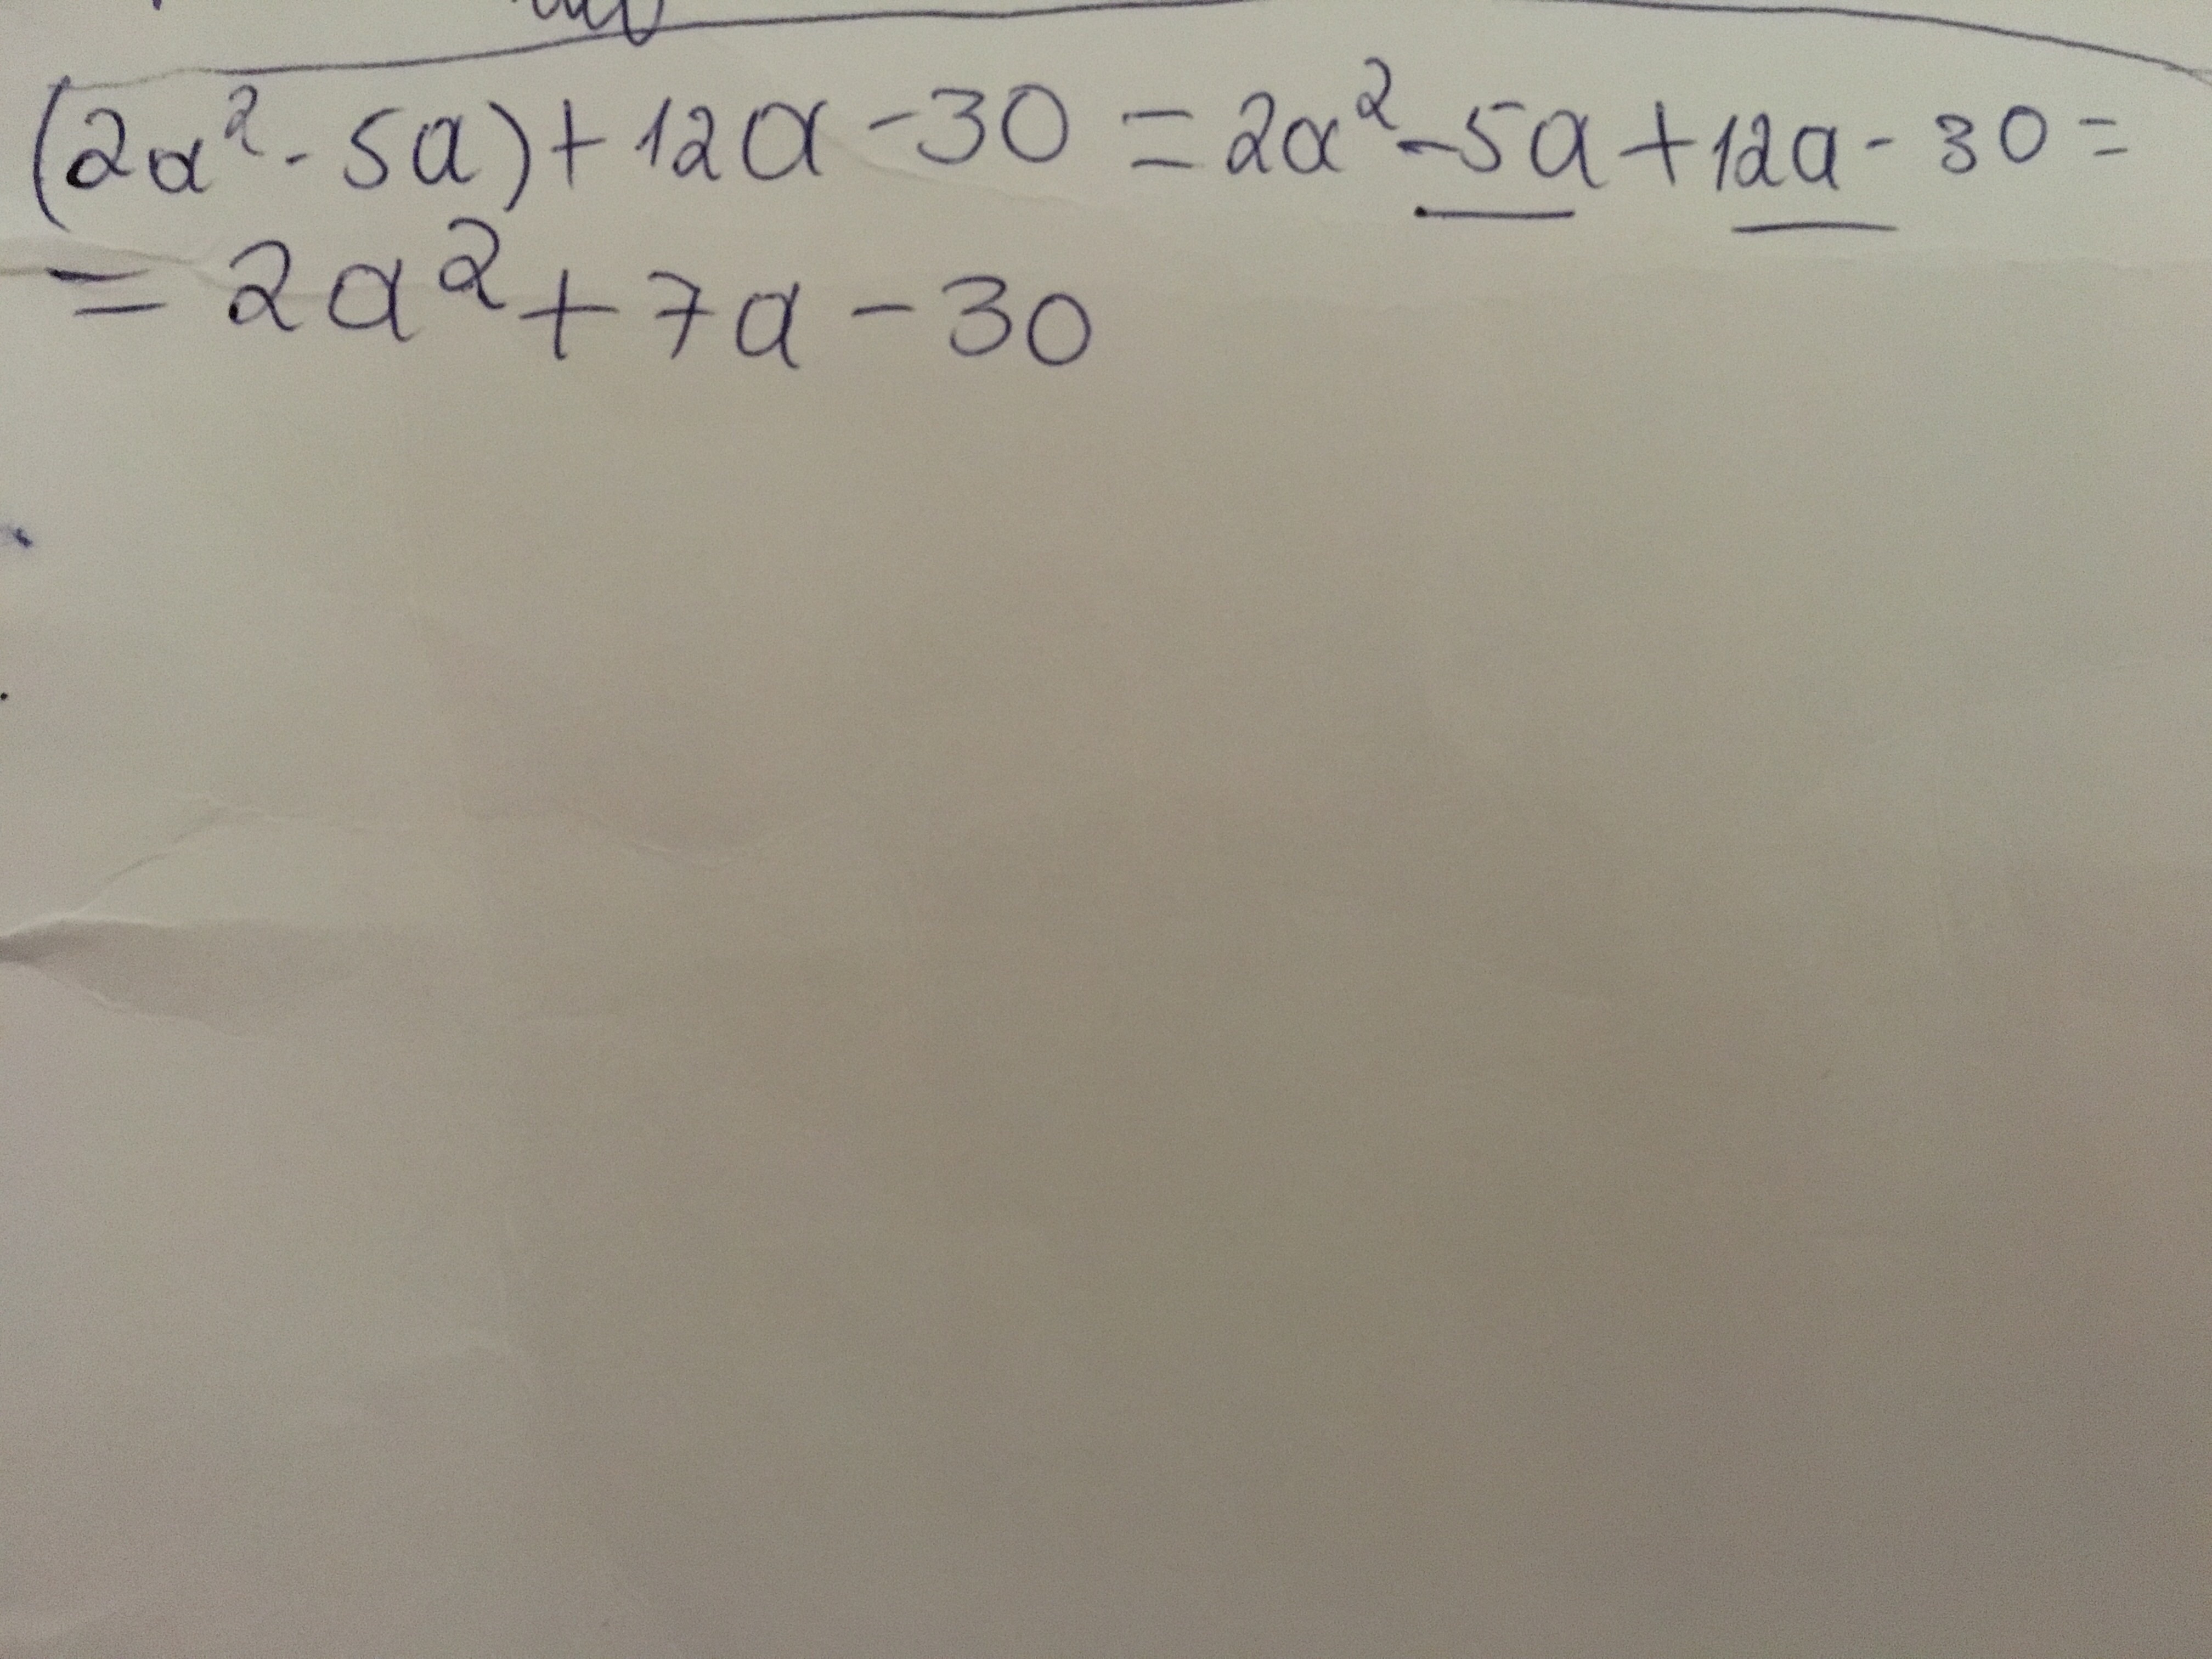 (2a² - 5a) + 12a - 30 = 2a² - 5a + 12a - 30 =
= 2a² + 7a - 30